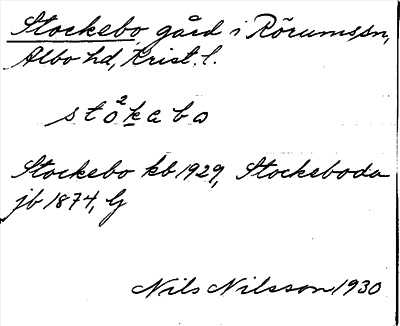 Stockebo, gård i Rörums sn,
Albo hd, Krist. l.
sto²kabo
Stockebo kb 1929, Stockeboda
jb 1874, G
Nils Nilsson 1930